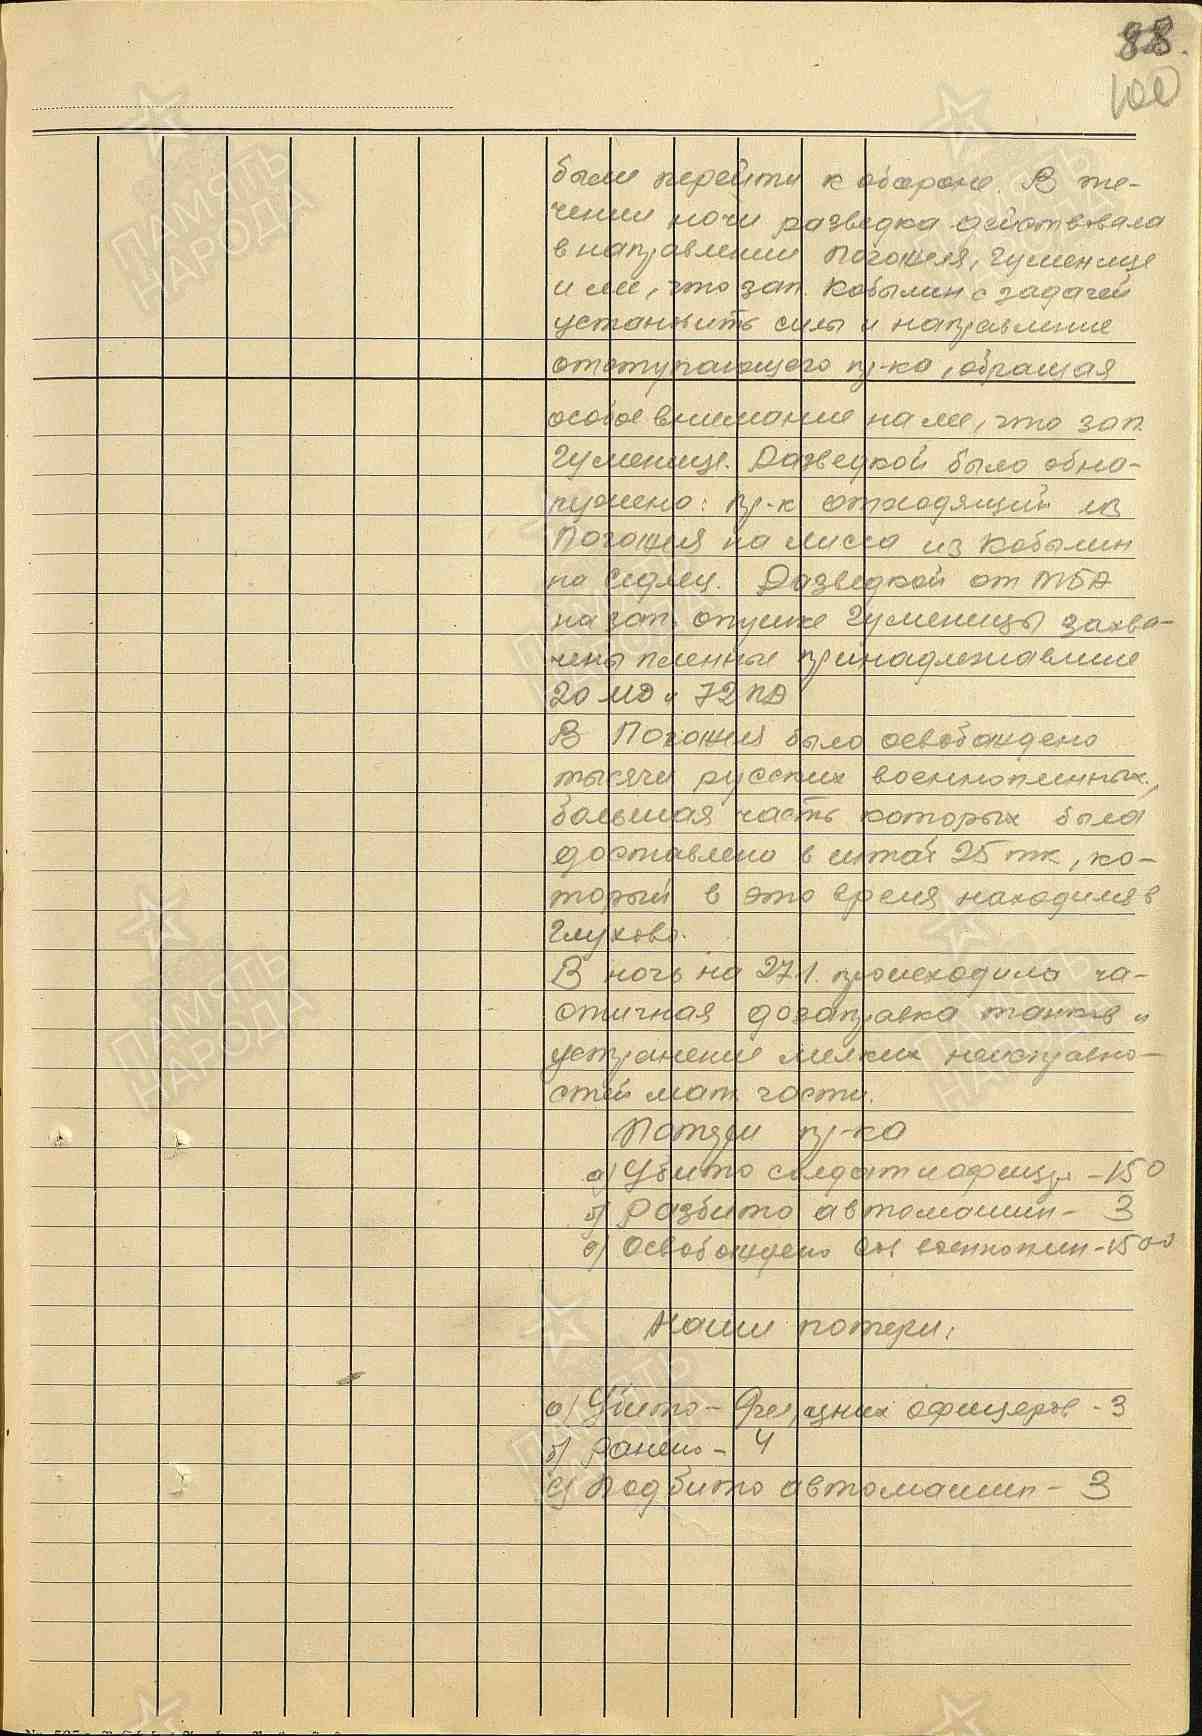 88.
100
были перейти к обороне. В те-
чении ночи разведка действовала
в направлении Погожеля, Гуменице
и ли, что зап. Кобылин с задачей
установить силы и направление
отступающего пр-ка, обращая
особое внимание на ли, что зап.
Гуменице. Разведкой было обна-
ружено: пр-к отходящий из
Погожеля на лисса из Кобылин
на Седлец. Разведкой от
на зап. опушке Гуменицы захва-
чены пленные принадлежавшие
20 МД и 72 ПД
В Погожеля было освобождено
тысячи русских военнопленных,
большая часть которых была
доставлено в штаб 25 тк, ко-
торый в это время находился в
Глухово.
В ночь на 27.1. происходила ча-
стичная дозаправка танков и
устранение мелких неисправно-
стей мат. части.
Потери пр-ка
а) Убито солдат и офицер - 150
б) Разбито автомашин - 3
в) Освобождено военноплен - 1500
Наши потери:
а) Убито - офицеров - 3
б) Ранено - 4
в) Подбито автомашин - 3
ПАМЯТЬ
НАРОДА
ПАМЯТЬ
НАРОДА
ПАМЯТЬ
НАРОДА
ПАМЯТЬ
НАРОДА
ПАМЯТЬ
НАРОДА
ПАМЯТЬ
НАРОДА